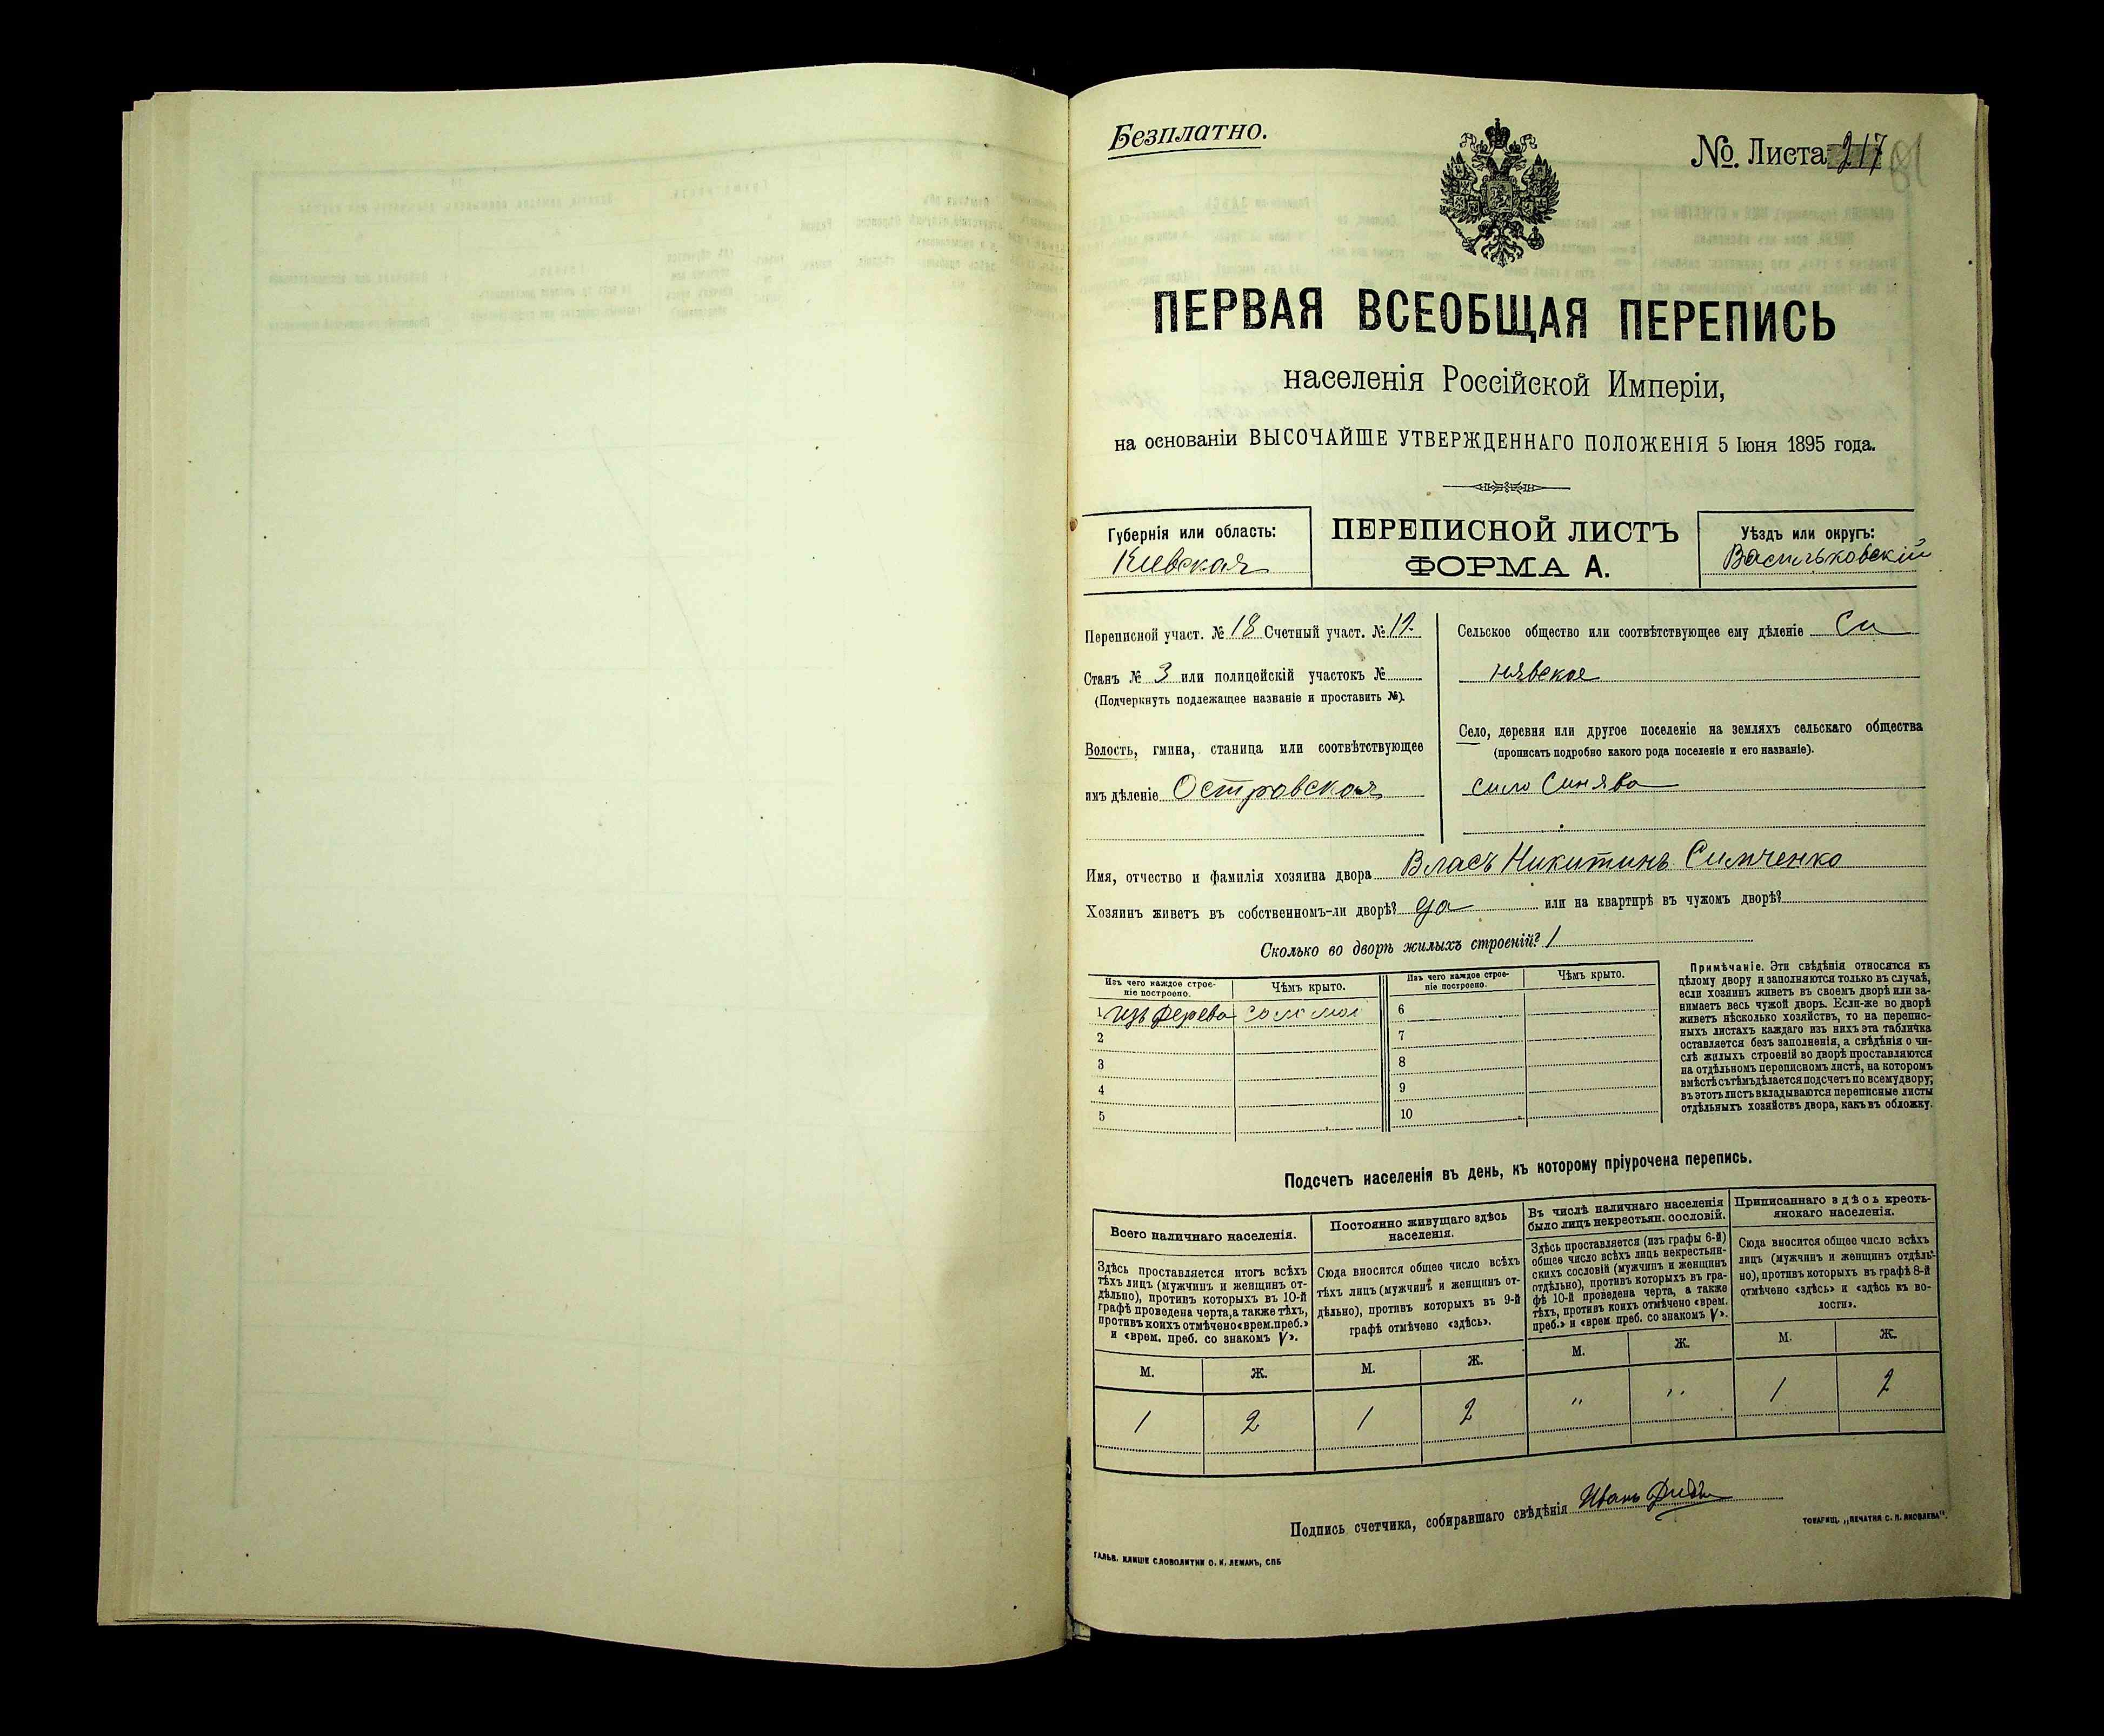 Безплатно.
№. Листа 217
ПЕРВАЯ ВСЕОБЩАЯ ПЕРЕПИСЬ
населенія Россійской Имперіи,
на основаніи ВЫСОЧАЙШЕ УТВЕРЖДЕННАГО ПОЛОЖЕНІЯ 5 Іюня 1895 года.
Губернія или область:
Киевская
ПЕРЕПИСНОЙ ЛИСТЪ
ФОРМА А.
Уѣздъ или округъ:
Васильковскій
Переписной участ. № 18 Счетный участ. № 12
Станъ № 3 или полицейскій участокъ №
(Подчеркнуть подлежащее названіе и проставить №).
Волость, гмина, станица или соотвѣтствующее
имъ дѣленіе Островская
Сельское общество или соотвѣтствующее ему дѣленіе Си
нявское
Село, деревня или другое поселеніе на земляхъ сельскаго общества
(прописать подробно какого рода поселеніе и его названіе).
село Синява
Имя, отчество и фамилія хозяина двора Власъ Никитинъ Симченко
Хозяинъ живетъ въ собственномъ-ли дворѣ? да или на квартирѣ въ чужомъ дворѣ?
Сколько во дворѣ жилыхъ строеній? 1
Изъ чего каждое строе-
ніе построено.
Чѣмъ крыто.
Изъ чего каждое строе-
ніе построено.
Чѣмъ крыто.
1 изъ дерева соломой 6
2 7
3 8
4 9
5 10
Примѣчаніе. Эти свѣдѣнія относятся къ
цѣлому двору и заполняются только въ случаѣ,
если хозяинъ живетъ въ своемъ дворѣ или за-
нимаетъ весь чужой дворъ. Если-же во дворѣ
живетъ нѣсколько хозяйствъ, то на перепис-
ныхъ листахъ каждаго изъ нихъ эта табличка
оставляется безъ заполненія, а свѣдѣнія о чи-
слѣ жилыхъ строеній во дворѣ проставляются
на отдѣльномъ переписномъ листѣ, на которомъ
вмѣстѣ съ тѣмъ дѣлается подсчетъ по всему двору;
въ этотъ листъ вкладываются переписные листы
отдѣльныхъ хозяйствъ двора, какъ въ обложку.
Подсчетъ населенія въ день, къ которому пріурочена перепись.
Всего наличнаго населенія.
Здѣсь проставляется итогъ всѣхъ
тѣхъ лицъ (мужчинъ и женщинъ от-
дѣльно), противъ которыхъ въ 10-й
графѣ проведена черта, а также тѣхъ,
противъ коихъ отмѣчено «врем. преб.»
и «врем. преб. со знакомъ V».
Постоянно живущаго здѣсь
населенія.
Сюда вносится общее число всѣхъ
тѣхъ лицъ (мужчинъ и женщинъ от-
дѣльно), противъ которыхъ въ 9-й
графѣ отмѣчено «здѣсь».
Въ числѣ наличнаго населенія
было лицъ некрестьян. сословій.
Здѣсь проставляется (изъ графы 6-й)
общее число всѣхъ лицъ некрестьян-
скихъ сословій (мужчинъ и женщинъ
отдѣльно), противъ которыхъ въ гра-
фѣ 10-й проведена черта, а также
тѣхъ, противъ коихъ отмѣчено «врем.
преб.» и «врем преб. со знакомъ V».
Приписаннаго здѣсь кресть-
янскаго населенія.
Сюда вносится общее число всѣхъ
лицъ (мужчинъ и женщинъ отдѣль-
но), противъ которыхъ въ графѣ 8-й
отмѣчено «здѣсь» и «здѣсь къ во-
лости».
М. Ж. М. Ж. М. Ж. М. Ж.
1 2 1 2 " " 1 2
Подпись счетчика, собиравшаго свѣдѣнія Иванъ
ГАЛЬВ. КЛИШЕ СЛОВОЛИТНИ О. И. ЛЕМАНЪ, СПБ
ТОВАРИЩ. „ПЕЧАТНЯ С. П. ЯКОВЛЕВА".